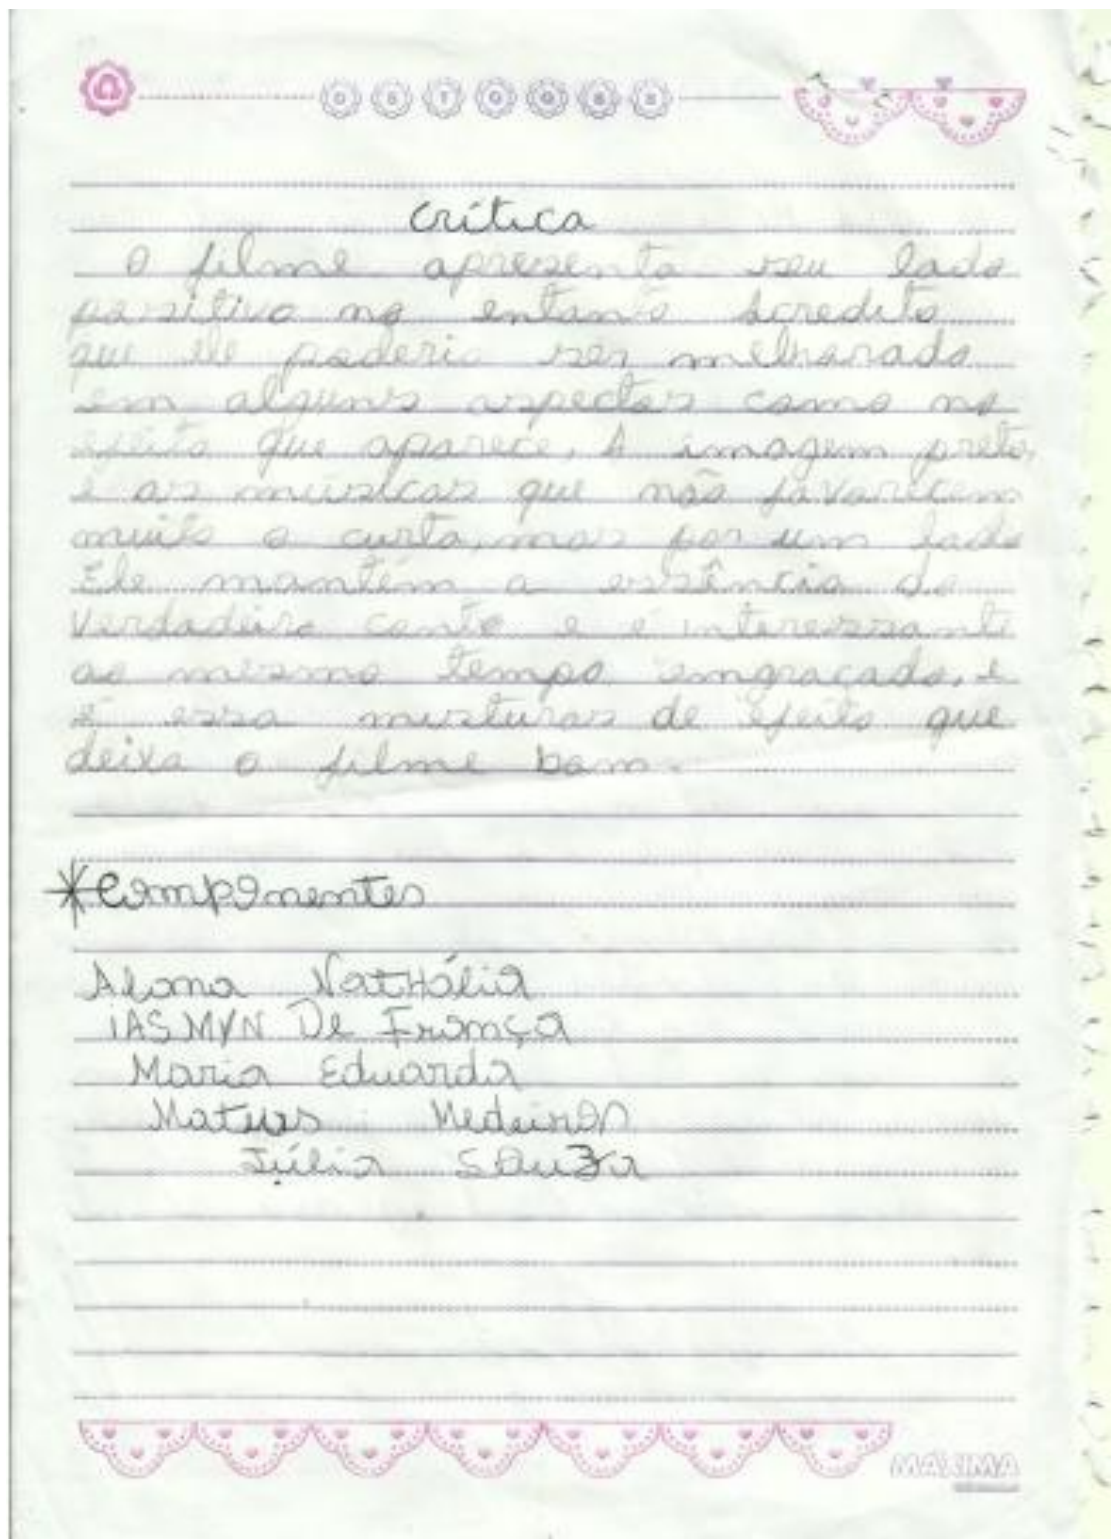 D S T Q Q S S
Crítica
O filme apresenta seu lado
positivo no entanto acredito
que ele poderia ser melhorado
em alguns aspectos como no
efeito que aparece, A imagem preta,
e as músicas que não favorecem
muito o curta, mas por um lado
Ele mantém a essência do
Verdadeiro conto e é interessante
ao mesmo tempo engraçado, e
é essa misturas de efeito que
deixa o filme bom.
*Componentes
Alana Nathália
IASMYN De França
Maria Eduarda
Mateus Medeiros
Júlia Souza
MÁXIMA